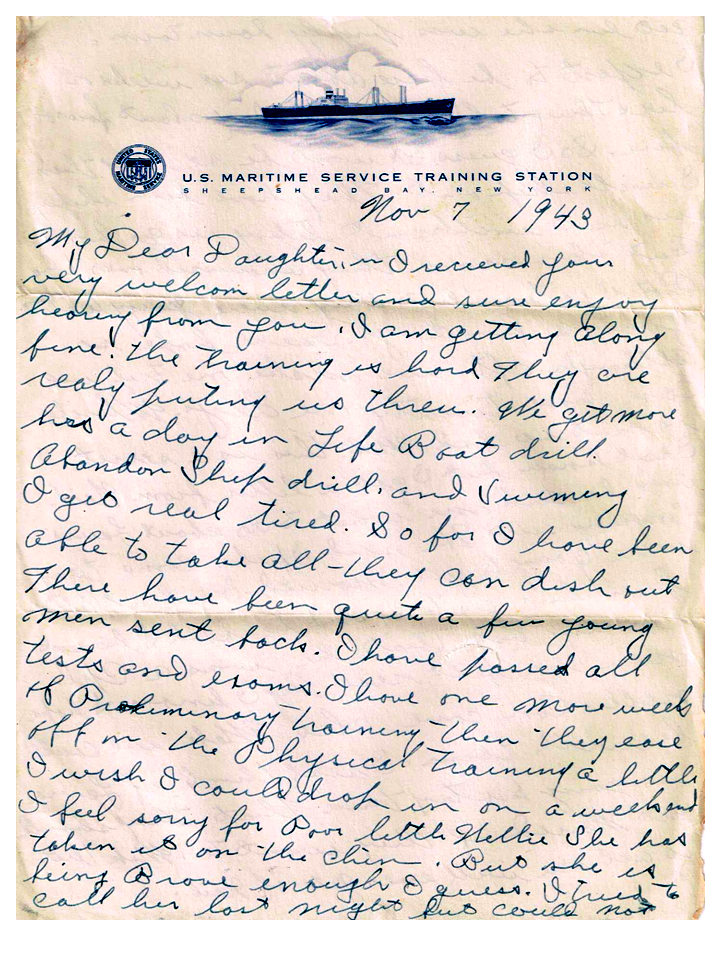 UNITED STATES
MARITIME SERVICE
U.S. MARITIME SERVICE TRAINING STATION
SHEEPSHEAD BAY, NEW YORK
Nov 7 1943
My Dear Daughter, I recieved your
very welcom letter and sure enjoy
hearing from you. I am getting along
fine. the training is hard They are
realy puting us threu. We get more
hrs a day in Life Boat drill.
Abandon Ship drill. and Swiming
I get real tired. So far I have been
able to take all they can dish out
There have been quite a few young
men sent back. I have passed all
tests and exams. I have one more week
of Preliminary training then they ease
off on the Physical training a little
I wish I could drop in on a weekend
I feel sorry for Poor little Nellie She has
taken it on the chin. But she is
being Brave enough I guess. I tried to
call her last night but could not